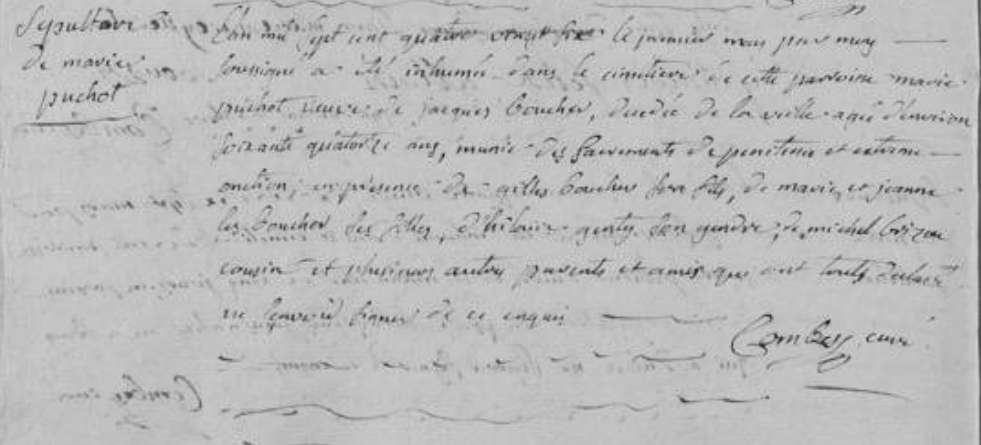 Sepulture
de marie
puchot
L'an mil sept cent quatre vingt le premier mars par moy
soussigné a été inhumée dans le cimetiere de cette parroisse marie
puchot veuve de jacques boucher, decedée de la veille agée d'environ
soixante quatorze ans, munie des sacrements de penitence et extreme
onction, en presence de gilles boucher son fils, de marie et jeanne
les boucher ses filles, d'hilaire genty son gendre, de michel
cousin et plusieurs autres parents et amis qui ont touts declaré
ne sçavoir signer de ce enquis
Combes curé